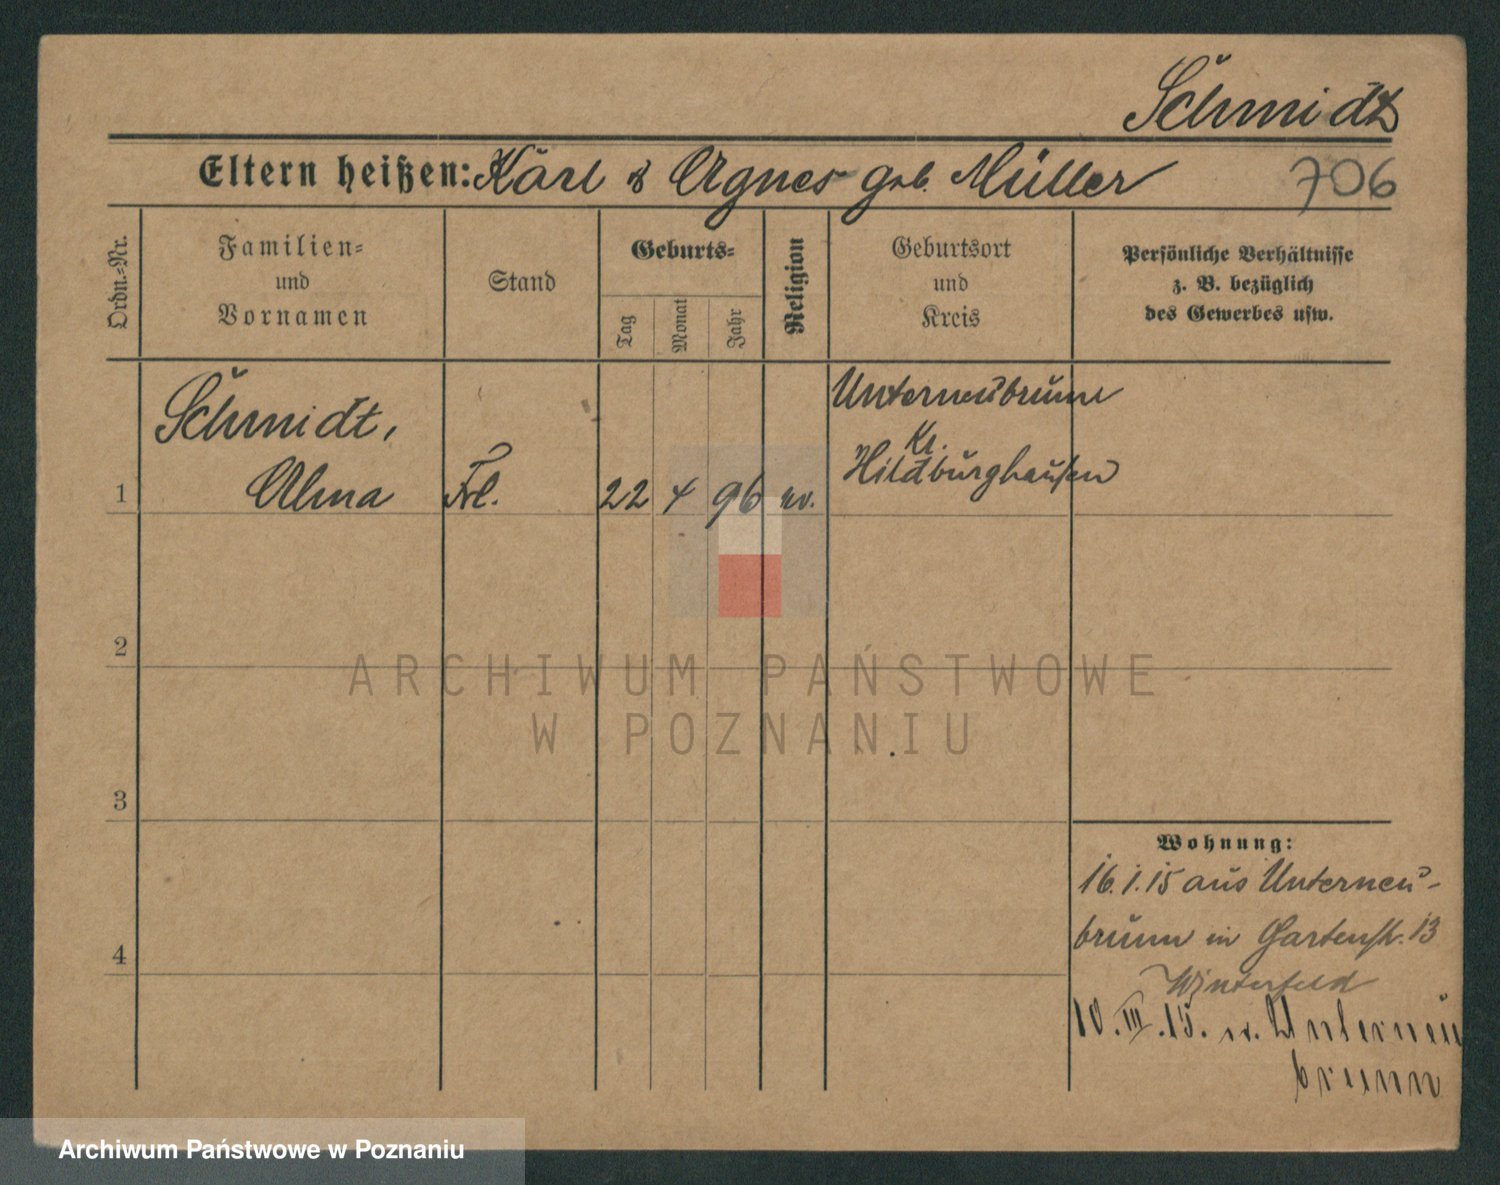 Schmidt
Eltern heißen: Karl & Agnes geb. Müller 706
Ordn.=Nr.
Familien=
und
Vornamen
Stand
Geburts=
Tag
Monat
Jahr
Religion
Geburtsort
und
Kreis
Persönliche Verhältnisse
z. B. bezüglich
des Gewerbes usw.
Schmidt,
Unterneubrunn
Kr.
Hildburghausen
1 Alma Frl. 22 4 96 ev.
2
3
4
Wohnung:
16.1.15 aus Unterneu-
brunn in Gartenstr. 13
Winterfeld
10.III.15. n. Unterneu
brunn
ARCHIWUM PAŃSTWOWE
W POZNANIU
Archiwum Państwowe w Poznaniu